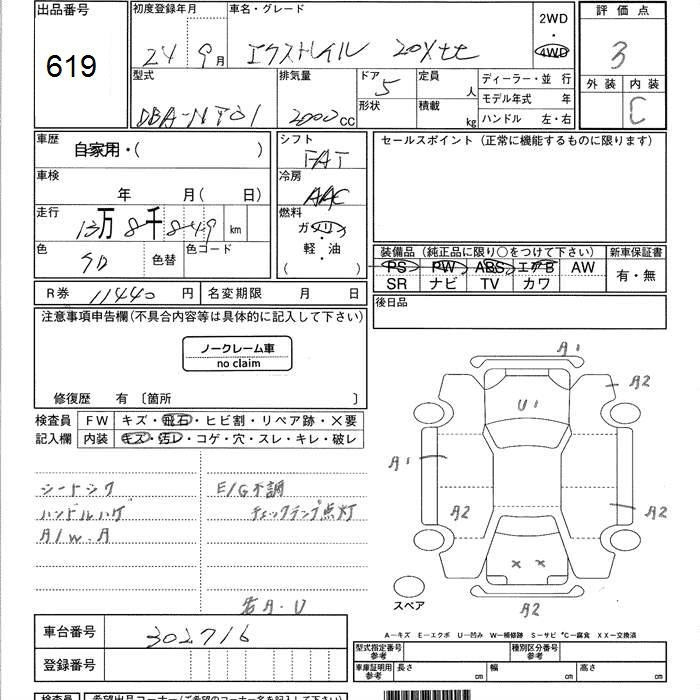 出品番号 619
初度登録年月 24年 9月
車名・グレード エクストレイル 20Xtt
2WD ・ 4WD
評価点 3
外装 内装 C
型式 DBA-NT31
排気量 2000cc
ドア 5
形状
定員 人
積載 kg
ディーラー・並行
モデル年式 年
ハンドル 左・右
車歴 自家用・( )
シフト FAT
セールスポイント (正常に機能するものに限ります)
車検 年 月(日)
冷房 AAC
走行 13万8千849 km
燃料 ガソリン ・ 軽・油 ( )
色 色替 色コード
装備品 (純正品に限り○をつけて下さい)
新車保証書 有・無
PS PW ABS エアB AW
SR ナビ TV カワ
R券 11440円 名変期限 月 日
後日品
注意事項申告欄(不具合内容等は具体的に記入して下さい)
ノークレーム車
no claim
修復歴 有 〔箇所 〕
検査員 FW キズ・飛石・ヒビ割・リペア跡・×要
記入欄 内装 キズ・汚レ・コゲ・穴・スレ・キレ・破レ
シートシワ
ハンドルハゲ
A/W.A
E/G不調
チェックランプ点灯
若A.U
A1
A2
U1
A1
A2
A2
× ×
スペア
A2
A―キズ E―エクボ U―凹み W―補修跡 S―サビ C―腐食 XX―交換済
車台番号 302716
登録番号
型式指定番号 参考
種別区分番号 参考
車庫証明用 参考 長さ cm 幅 cm 高さ cm
検査員 希望出品コーナー(ご希望のコーナー名を記入下さい)